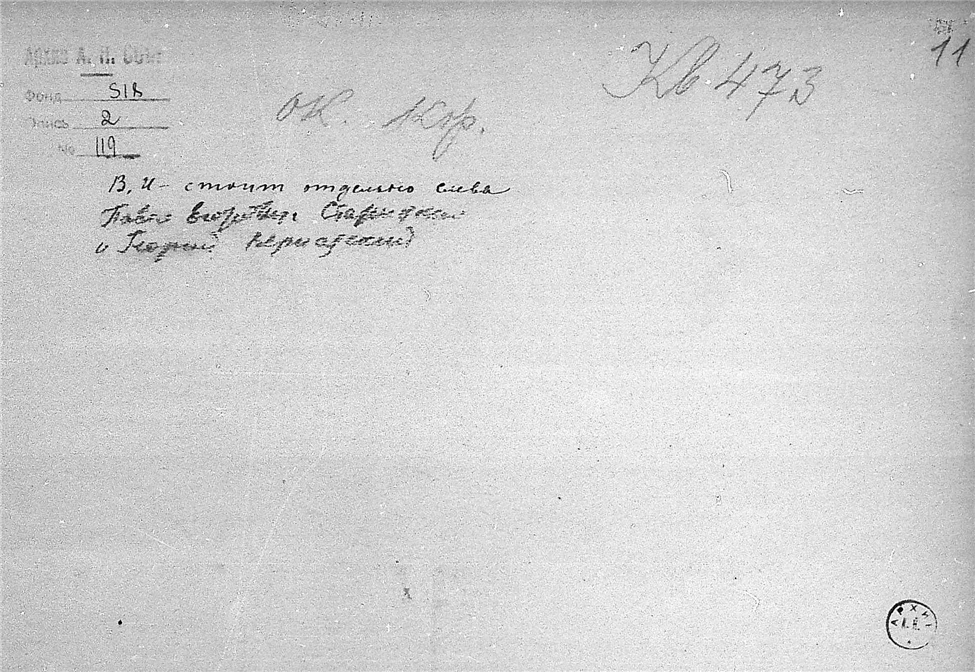 Архив А. Н. СССР
11
Кв 473
Фонд 518
Опись 2
№ 119
ок. Кор.
В, И - стоит отдельно слева
Павел Егорович Старицкий
и Георгий Вернадский
АРХИВ